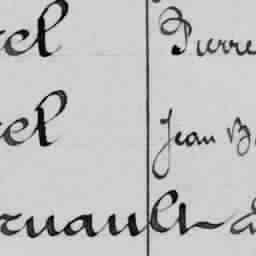 el Pierre
el Jean B
ruault